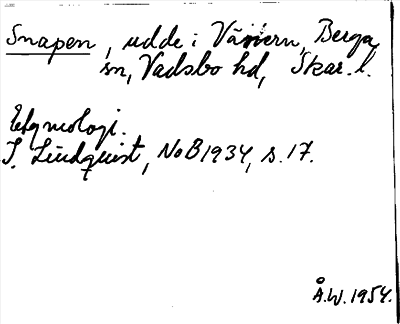 Snapen, udde i Vänern, Berga
sn, Vadsbo hd, Skar. l.
Etymologi.
I. Lindquist, NoB 1934, s. 17.
Å.W. 1954.